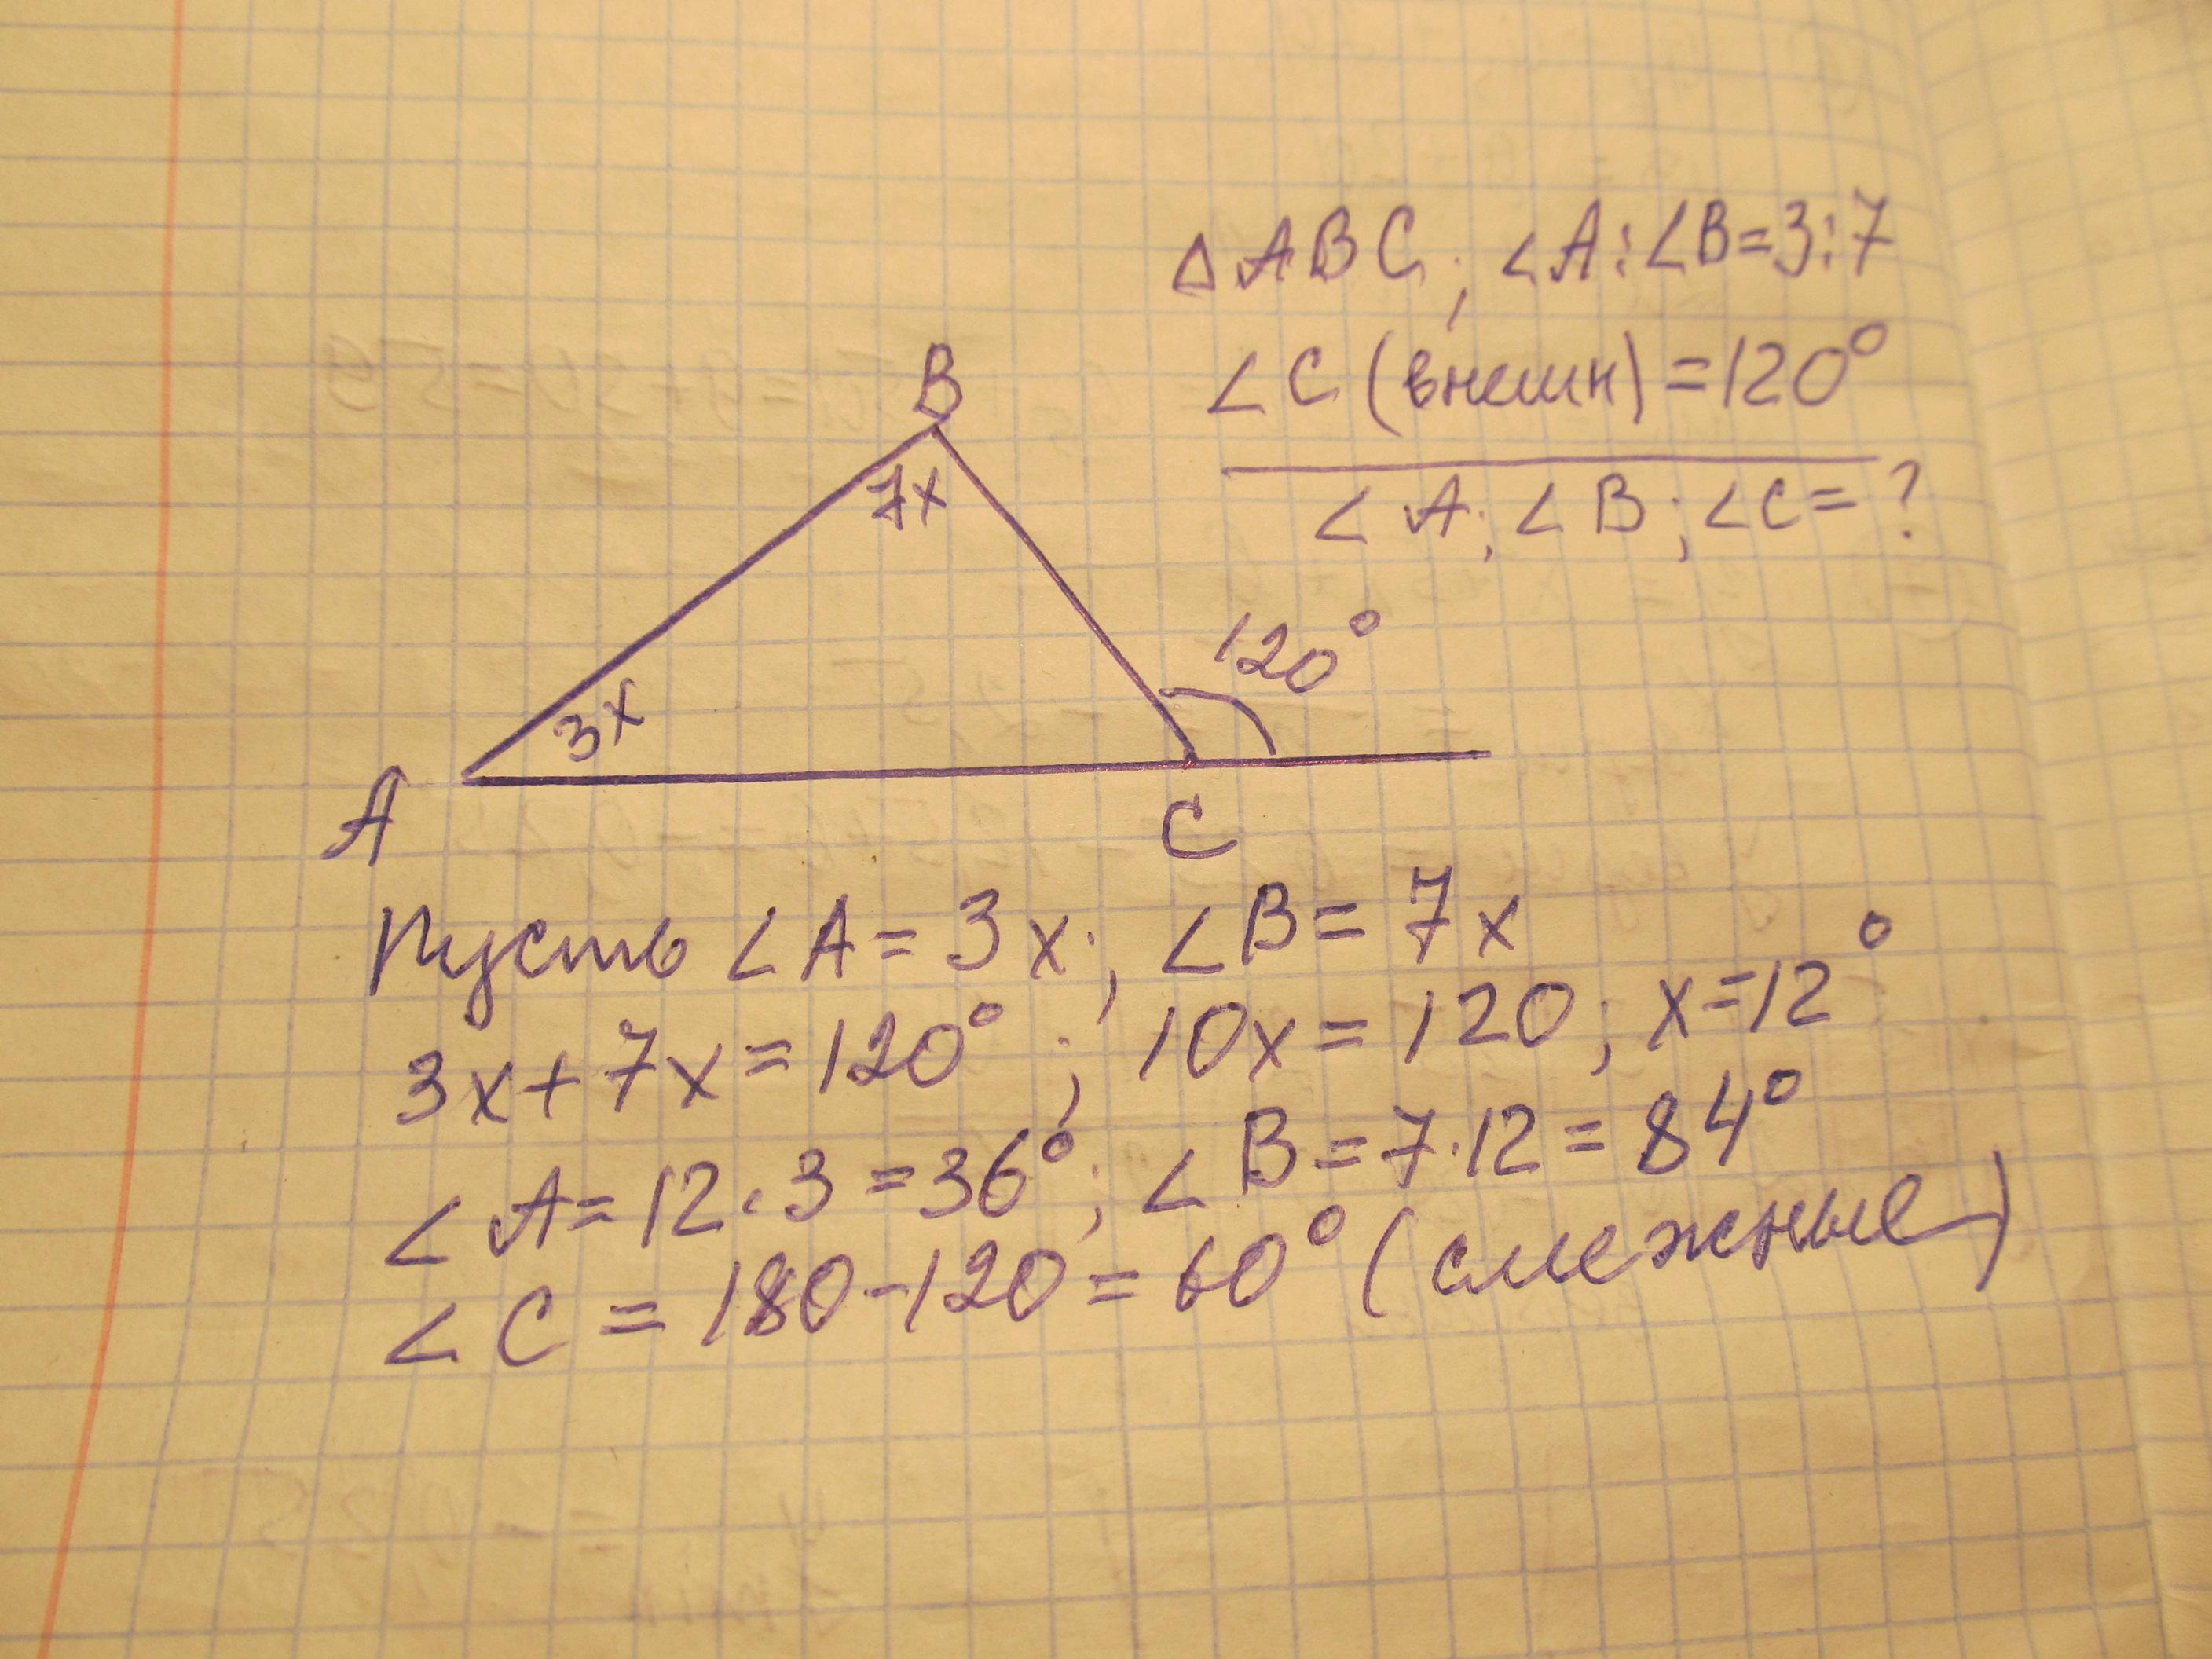 △ABC; ∠A:∠B=3:7
∠C (внешн)=120°
∠A; ∠B; ∠C=?
B
7x
3x
120°
A
C
Пусть ∠A=3x; ∠B=7x
3x+7x=120°; 10x=120; x=12°
∠A=12·3=36°; ∠B=7·12=84°
∠C=180-120=60° (смежные)